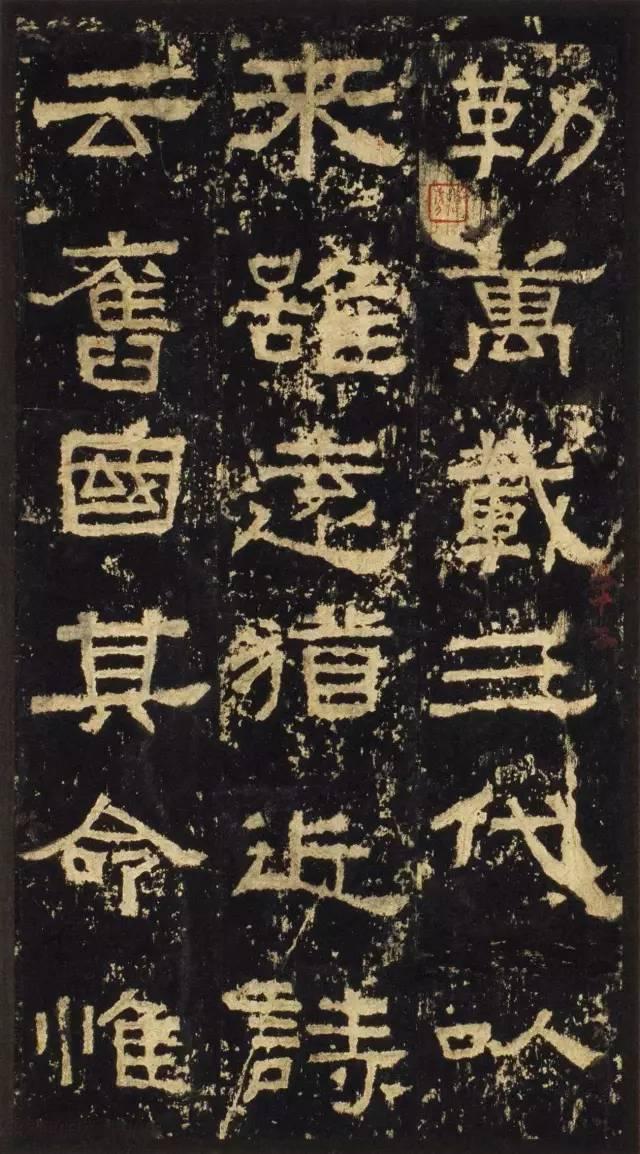 勒萬載三代以
来雖遠猶近詩
云舊國其命惟